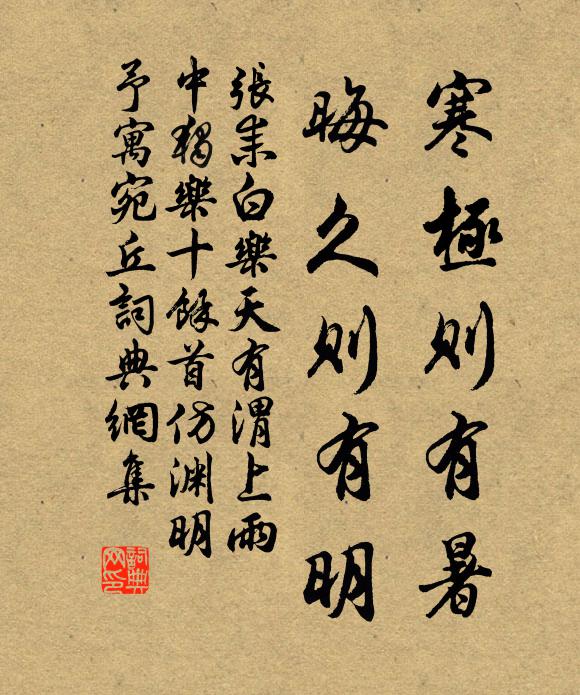 寒極則有暑
晦久則有明
張耒白樂天有渭上雨
中獨樂十餘首仿淵明
予寓宛丘詞典網集
詞典网印